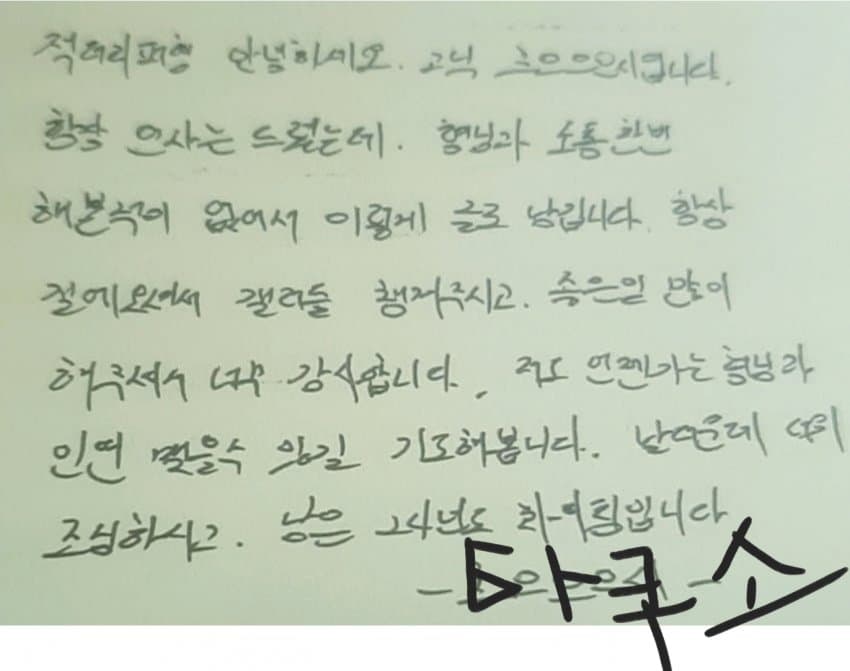 안녕하세요. 고닉
항상 인사는 드렸는데. 형님과 소통한번
해본적이 없어서 이렇게 글로 남깁니다. 항상
갤러들 챙겨주시고. 좋은일 많이
해주셔서 너무 감사합니다. 저도 언젠가는 형님과
인연 맺을수 있길 기도해봅니다. 날더운데 더위
조심하시고. 남은 24년도 화이팅입니다